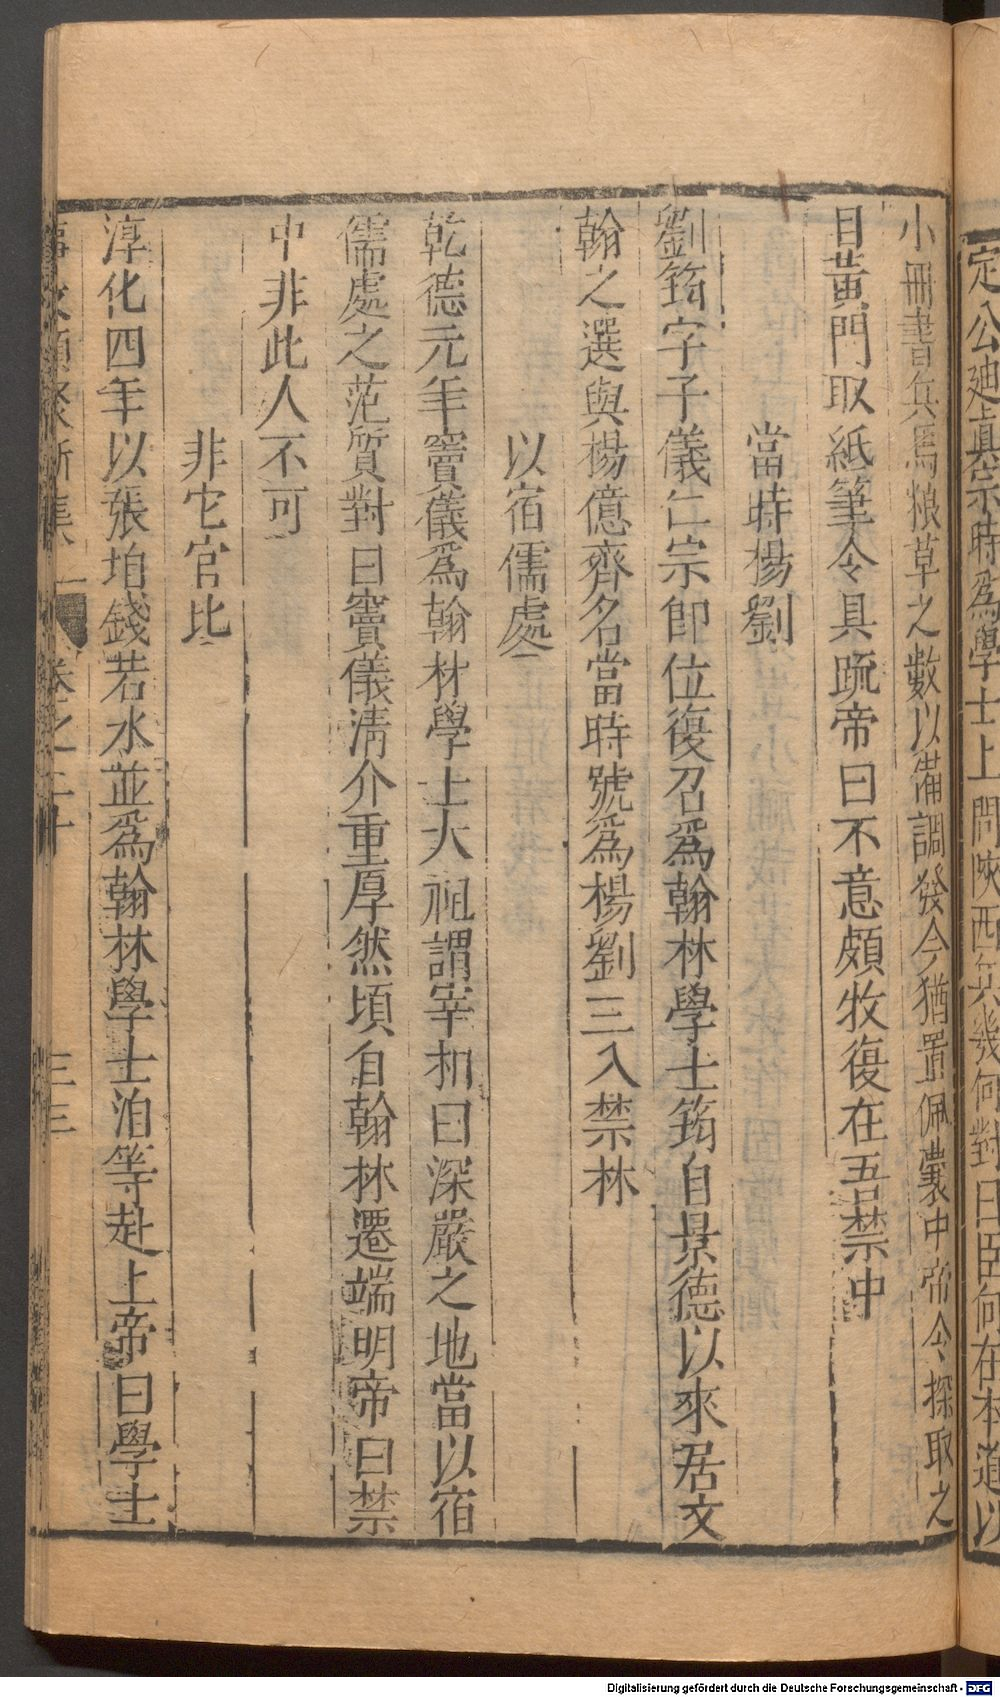 定公迪真宗時爲學士上問陝西兵幾何對曰臣向在本道以
小冊書兵馬粮草之數以備調發今猶置佩囊中帝令探取之
目黃門取紙筆令具疏帝曰不意頗牧復在吾禁中
當時楊劉
劉筠字子儀仁宗即位復召爲翰林學士筠自景德以來居文
翰之選與楊億齊名當時號爲楊劉三入禁林
以宿儒處
乾德元年竇儀爲翰林學士大祖謂宰相曰深嚴之地當以宿
儒處之范質對曰竇儀清介重厚然頃自翰林遷端明帝曰禁
中非此人不可
非它官比
淳化四年以張洎錢若水並爲翰林學士洎等赴上帝曰學士
事文類聚新集 卷之二十 三三
Digitalisierung gefördert durch die Deutsche Forschungsgemeinschaft - DFG